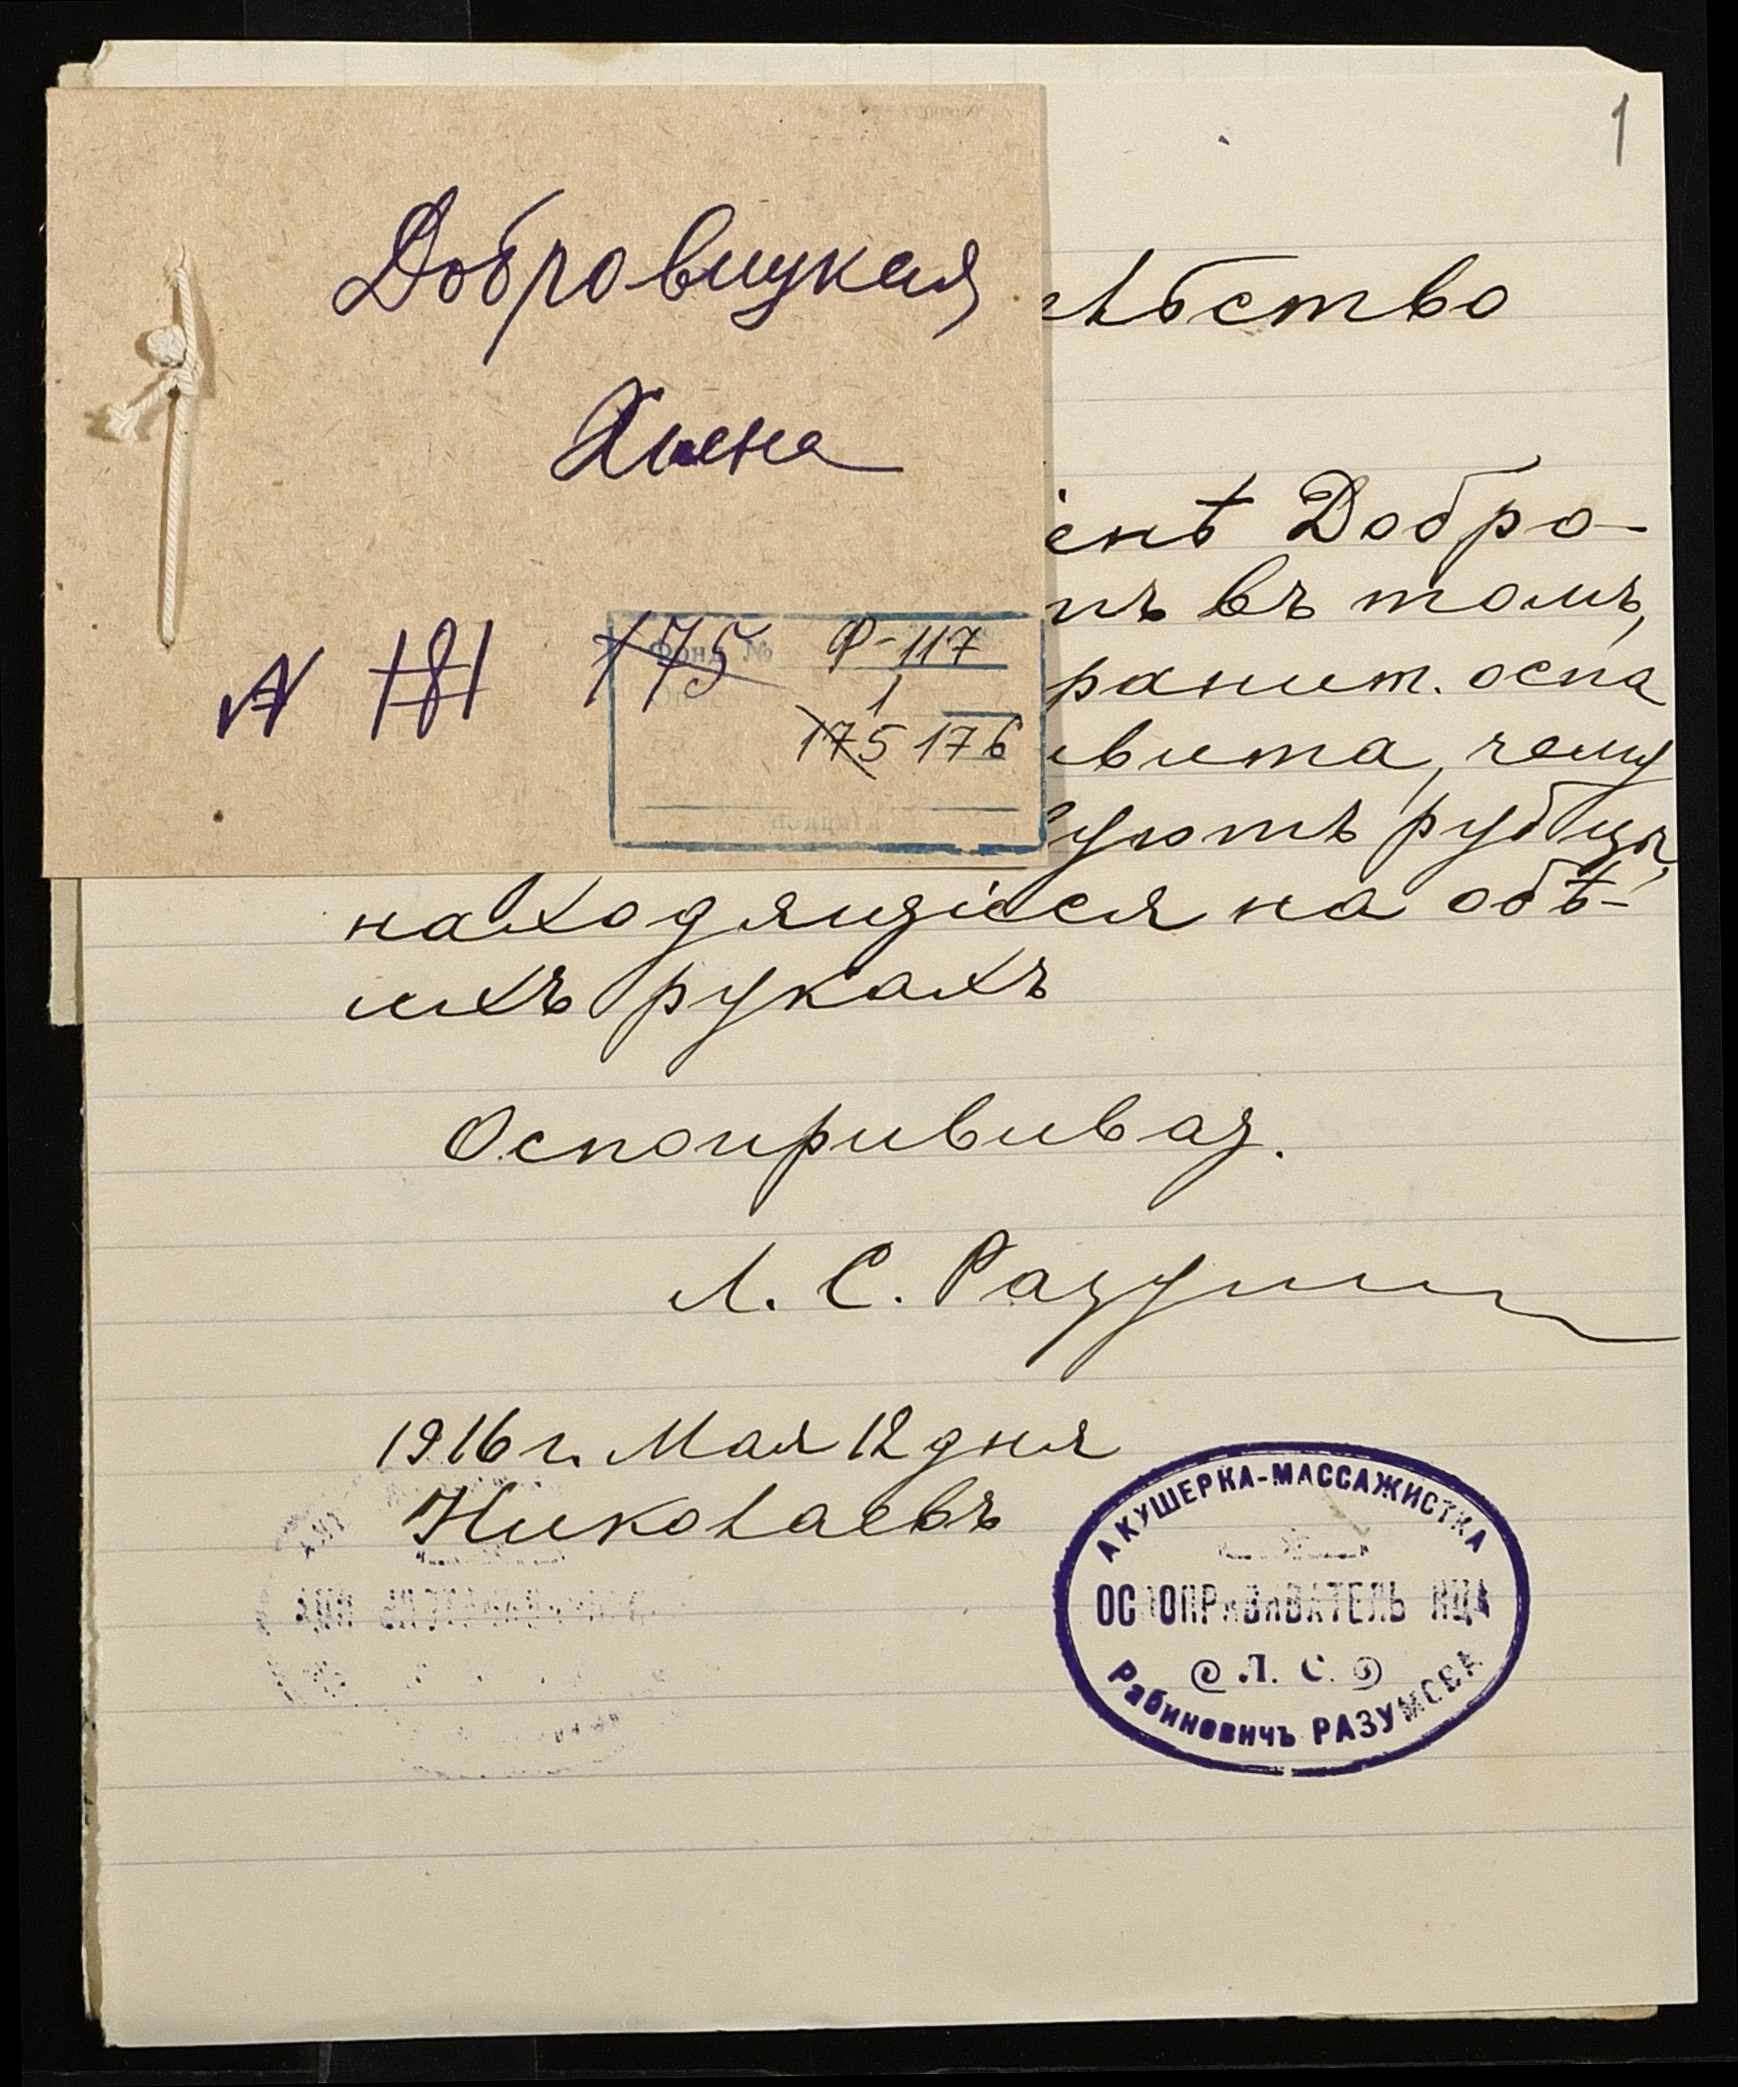 1
Добровицкая
Хиена
№ 181 175
Фонд № Ф-117
1
175 176
ѣльство
енѣ Добро-
ъ въ томъ,
ранит. оспа
вита, чему
уютъ рубцы,
находящіеся на обѣ-
ихъ рукахъ
Оспопрививая.
Л. С. Разум
1916 г. Мая 12 дня
Николаевъ
АКУШЕРКА-МАССАЖИСТКА
ОСПОПРИВИВАТЕЛЬНИЦА
Л. С.
Рабиновичъ РАЗУМОВА